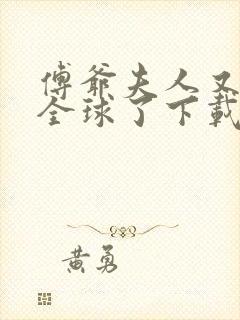 傅爺夫人又
全球了下載
黄勇